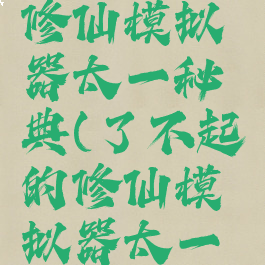 修仙模拟
器太一秘
典(了不起
的修仙模
拟器太一